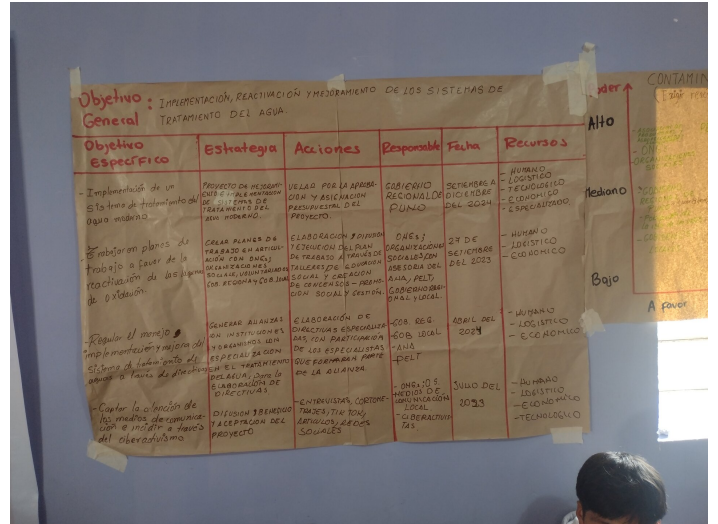 Objetivo General : IMPLEMENTACIÓN, REACTIVACIÓN Y MEJORAMIENTO DE LOS SISTEMAS DE
TRATAMIENTO DEL AGUA.
Objetivo Específico
Estrategia
Acciones
Responsable
Fecha
Recursos
- Implementación de un
sistema de tratamiento del
agua moderno
PROYECTO DE MEJORAMI-
ENTO E IMPLEMENTACIÓN
DE SISTEMAS DE
TRATAMIENTO DEL
AGUA MODERNO.
VELAR POR LA APROBA-
CIÓN Y ASIGNACIÓN
PRESUPUESTAL DEL
PROYECTO.
GOBIERNO
REGIONAL DE
PUNO
SETIEMBRE A
DICIEMBRE
DEL 2024
- HUMANO
- LOGISTICO
- TECNOLOGICO
- ECONOMICO
- ESPECIALIZADO.
planes de
trabajo a favor de la
reactivación de las lagunas
de oxidación.
CREAR PLANES DE
TRABAJO EN ARTICUL-
ACIÓN CON ONGs;
ORGANIZACIONES
SOCIALES, VOLUNTARIADOS
GOB. REGIONAL y GOB. LOCAL
ELABORACIÓN Y DIFUSION
Y EJECUCION DEL PLAN
DE TRABAJO A TRAVÉS DE
TALLERES DE EDUCACIÓN
SOCIAL Y CREACIÓN
DE CONCENCIA - PROMO-
CION SOCIAL Y GESTIÓN.
ONEs;
ORGANIZACIONES
SOCIALES, CON
ASESORIA DEL
ANA, PELT,
GOBIERNO REGI-
ONAL Y LOCAL.
27 DE
SETIEMBRE
DEL 2023
- HUMANO
- LOGISTICO
- ECONOMICO
- Regular el manejo
implementación y mejora del
sistema de tratamiento de
aguas a través de directivas
GENERAR ALIANZAS
CON INSTITUCIONES
Y ORGANISMOS CON
ESPECIALIZACION
EN EL TRATAMIENTO
DEL AGUA, para la
ELABORACIÓN DE
DIRECTIVAS
ELABORACIÓN DE
DIRECTIVAS ESPECIALIZA-
DAS, CON PARTICIPACIÓN
DE LOS ESPECIALISTAS
QUE FORMARAN PARTE
DE LA ALIANZA.
- GOB REG.
- GOB LOCAL
- ANA
- PELT
ABRIL DEL
2024
- HUMANO
- LOGISTICO
- ECONOMICO
- Captar la atención de
los medios de comunica-
ción e incidir a través
del ciberactivismo
DIFUSION Y BENEFICIO
Y ACEPTACION DEL
PROYECTO
- ENTREVISTAS, CORTOME-
TRAJES, TIK TOK,
ARTICULOS, REDES
SOCIALES
- ONGs; OS
MEDIOS DE
COMUNICACIÓN
LOCAL
- CIBERACTIVIS
TAS
JULIO DEL
2023
- HUMANO
- LOGISTICO
- ECONOMICO
- TECNOLOGICO
Poder
Alto
Mediano
Bajo
A favor
CONTAMIN